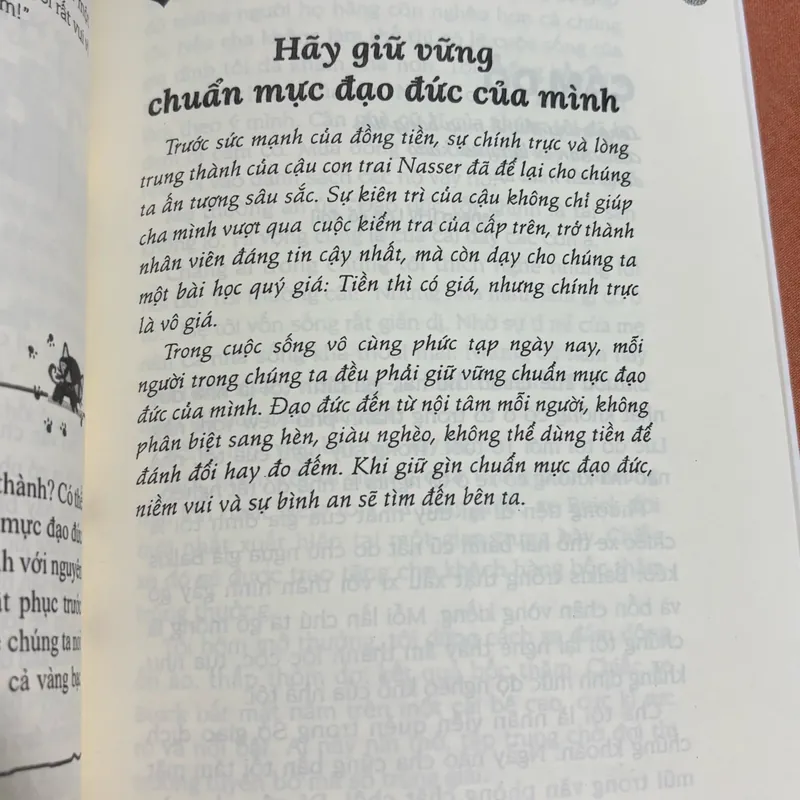 Hãy giữ vững
chuẩn mực đạo đức của mình
Trước sức mạnh của đồng tiền, sự chính trực và lòng
trung thành của cậu con trai Nasser đã để lại cho chúng
ta ấn tượng sâu sắc. Sự kiên trì của cậu không chỉ giúp
cha mình vượt qua cuộc kiểm tra của cấp trên, trở thành
nhân viên đáng tin cậy nhất, mà còn dạy cho chúng ta
một bài học quý giá: Tiền thì có giá, nhưng chính trực
là vô giá.
Trong cuộc sống vô cùng phức tạp ngày nay, mỗi
người trong chúng ta đều phải giữ vững chuẩn mực đạo
đức của mình. Đạo đức đến từ nội tâm mỗi người, không
phân biệt sang hèn, giàu nghèo, không thể dùng tiền để
đánh đổi hay đo đếm. Khi giữ gìn chuẩn mực đạo đức,
niềm vui và sự bình an sẽ tìm đến bên ta.
thành? Có thể
mực đạo đức
h với nguyên
phục trước
chúng ta
cả vàng